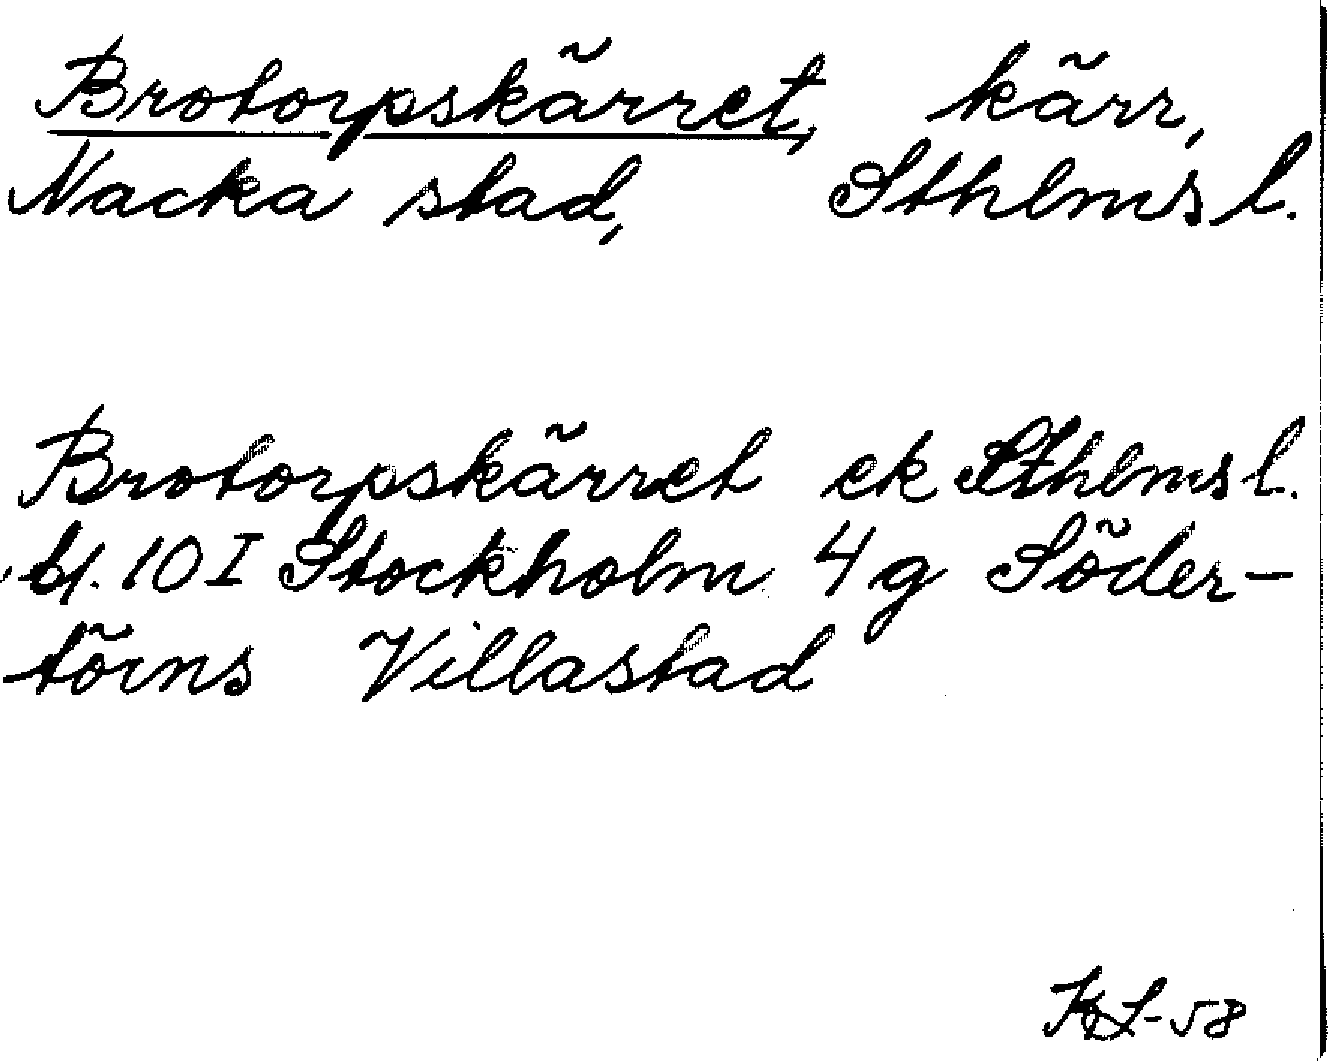 Brotorpskärret, kärr,
Nacka stad, Sthlms l.
Brotorpskärret ek Sthlms l.
bl. 10 I Stockholm 4 g Söder-
törns Villastad
KL-58